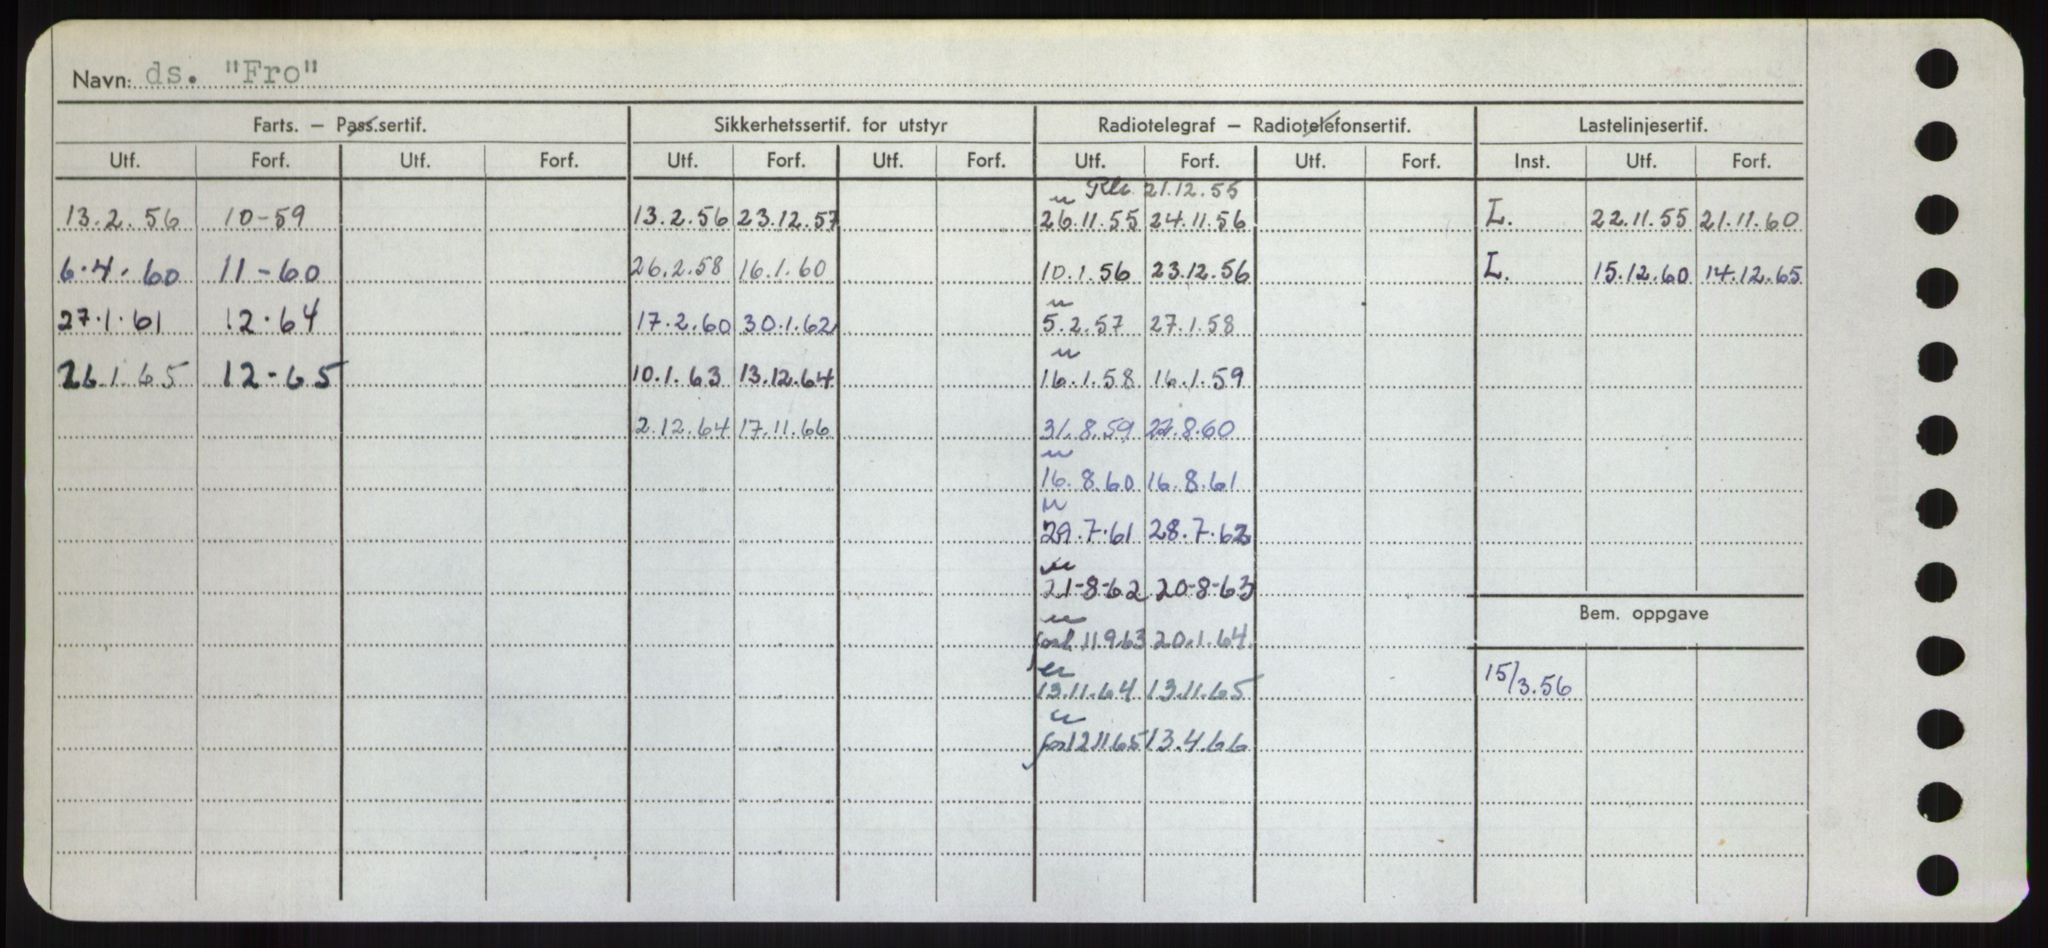 Navn: ds. "Fro"
Farts. – Pass.sertif. Sikkerhetssertif. for utstyr Radiotelegraf – Radiotelefonsertif. Lastelinjesertif.
Utf. Forf. Utf. Forf. Utf. Forf. Utf. Forf. Utf. Forf. Utf. Forf. Inst. Utf. Forf.
21.12.55
13.2.56 10-59 13.2.56 23.12.57 26.11.55 24.11.56 L. 22.11.55 21.11.60
6.4.60 11-60 26.2.58 16.1.60 10.1.56 23.12.56 L. 15.12.60 14.12.65
27.1.61 12.64 17.2.60 30.1.62 5.2.57 27.1.58
26.1.65 12-65 10.1.63 13.12.64 16.1.58 16.1.59
2.12.64 17.11.66 31.8.59 22.8.60
16.8.60 16.8.61
29.7.61 28.7.62
21-8-62 20-8-63
Bem. oppgave
11.9.63 20.1.64
13.11.64 13.11.65 15/3.56
12.11.65 13.4.66